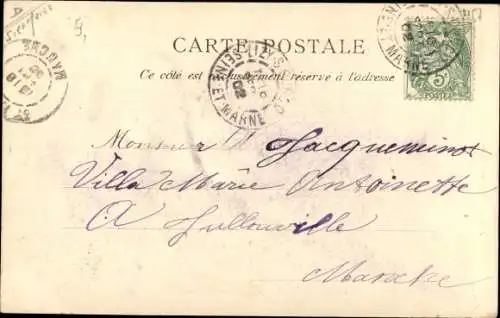 CARTE POSTALE
Ce côté est exclusivement réservé à l'adresse
LIZY-S-OURCQ
SEINE-ET-MARNE
02
5c
POSTES
Monsieur A Jacqueminot
Villa Marie Antoinette
A Jullouville
Manche